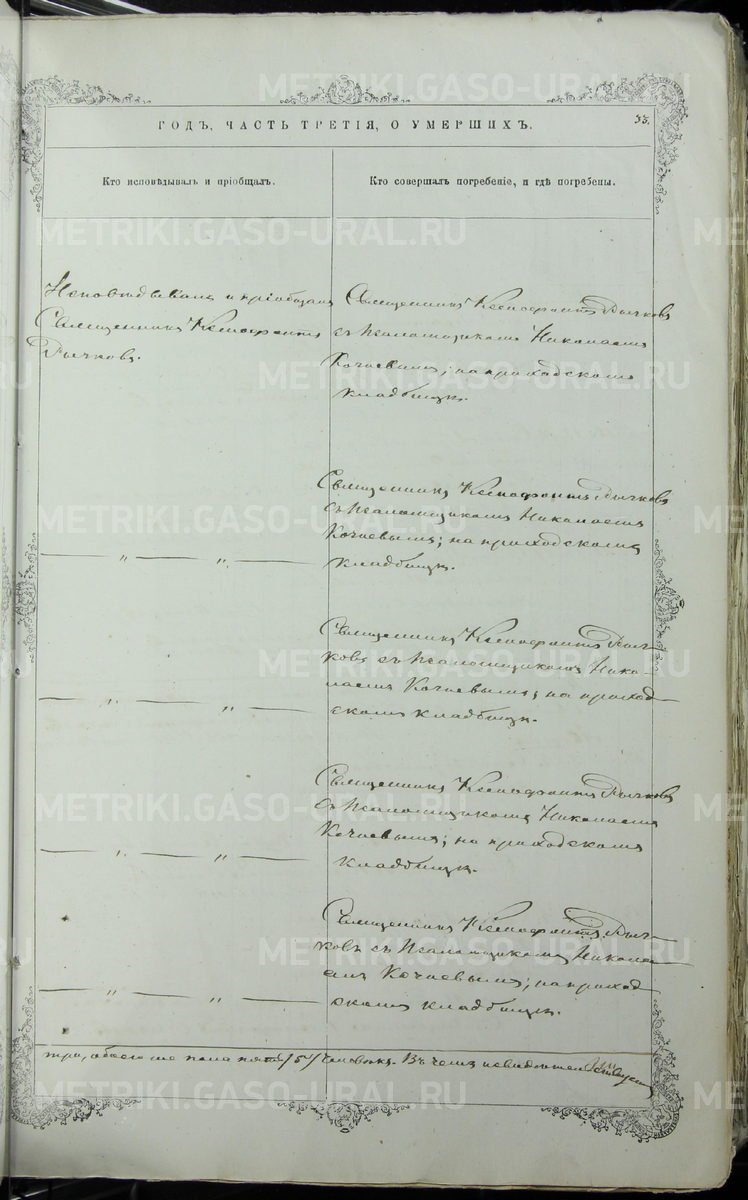 ГОДЪ, ЧАСТЬ ТРЕТІЯ, О УМЕРШИХЪ.
33.
Кто исповѣдывалъ и пріобщалъ.
Кто совершалъ погребеніе, и гдѣ погребены.
Исповѣдывалъ и пріобщалъ
Священникъ Ксенофонтъ
Рычковъ.
Священникъ Ксенофонтъ Рычковъ
съ Псаломщикомъ Николаемъ
Кочневымъ; на приходскомъ
кладбищѣ.
Священникъ Ксенофонтъ Рычковъ
съ Псаломщикомъ Николаемъ
Кочневымъ; на приходскомъ
кладбищѣ.
— „ — „ —
Священникъ Ксенофонтъ Рыч-
ковъ съ Псаломщикомъ Нико-
лаемъ Кочневымъ; на приход-
скомъ кладбищѣ.
— „ — „ —
Священникъ Ксенофонтъ Рычковъ
съ Псаломщикомъ Николаемъ
Кочневымъ; на приходскомъ
кладбищѣ.
— „ — „ —
Священникъ Ксенофонтъ Рыч-
ковъ съ Псаломщикомъ Никола-
емъ Кочневымъ; на приход-
скомъ кладбищѣ.
— „ — „ —
три, обоего же пола пять /5/ человѣкъ. Въ чемъ и
METRIKI.GASO-URAL.RU